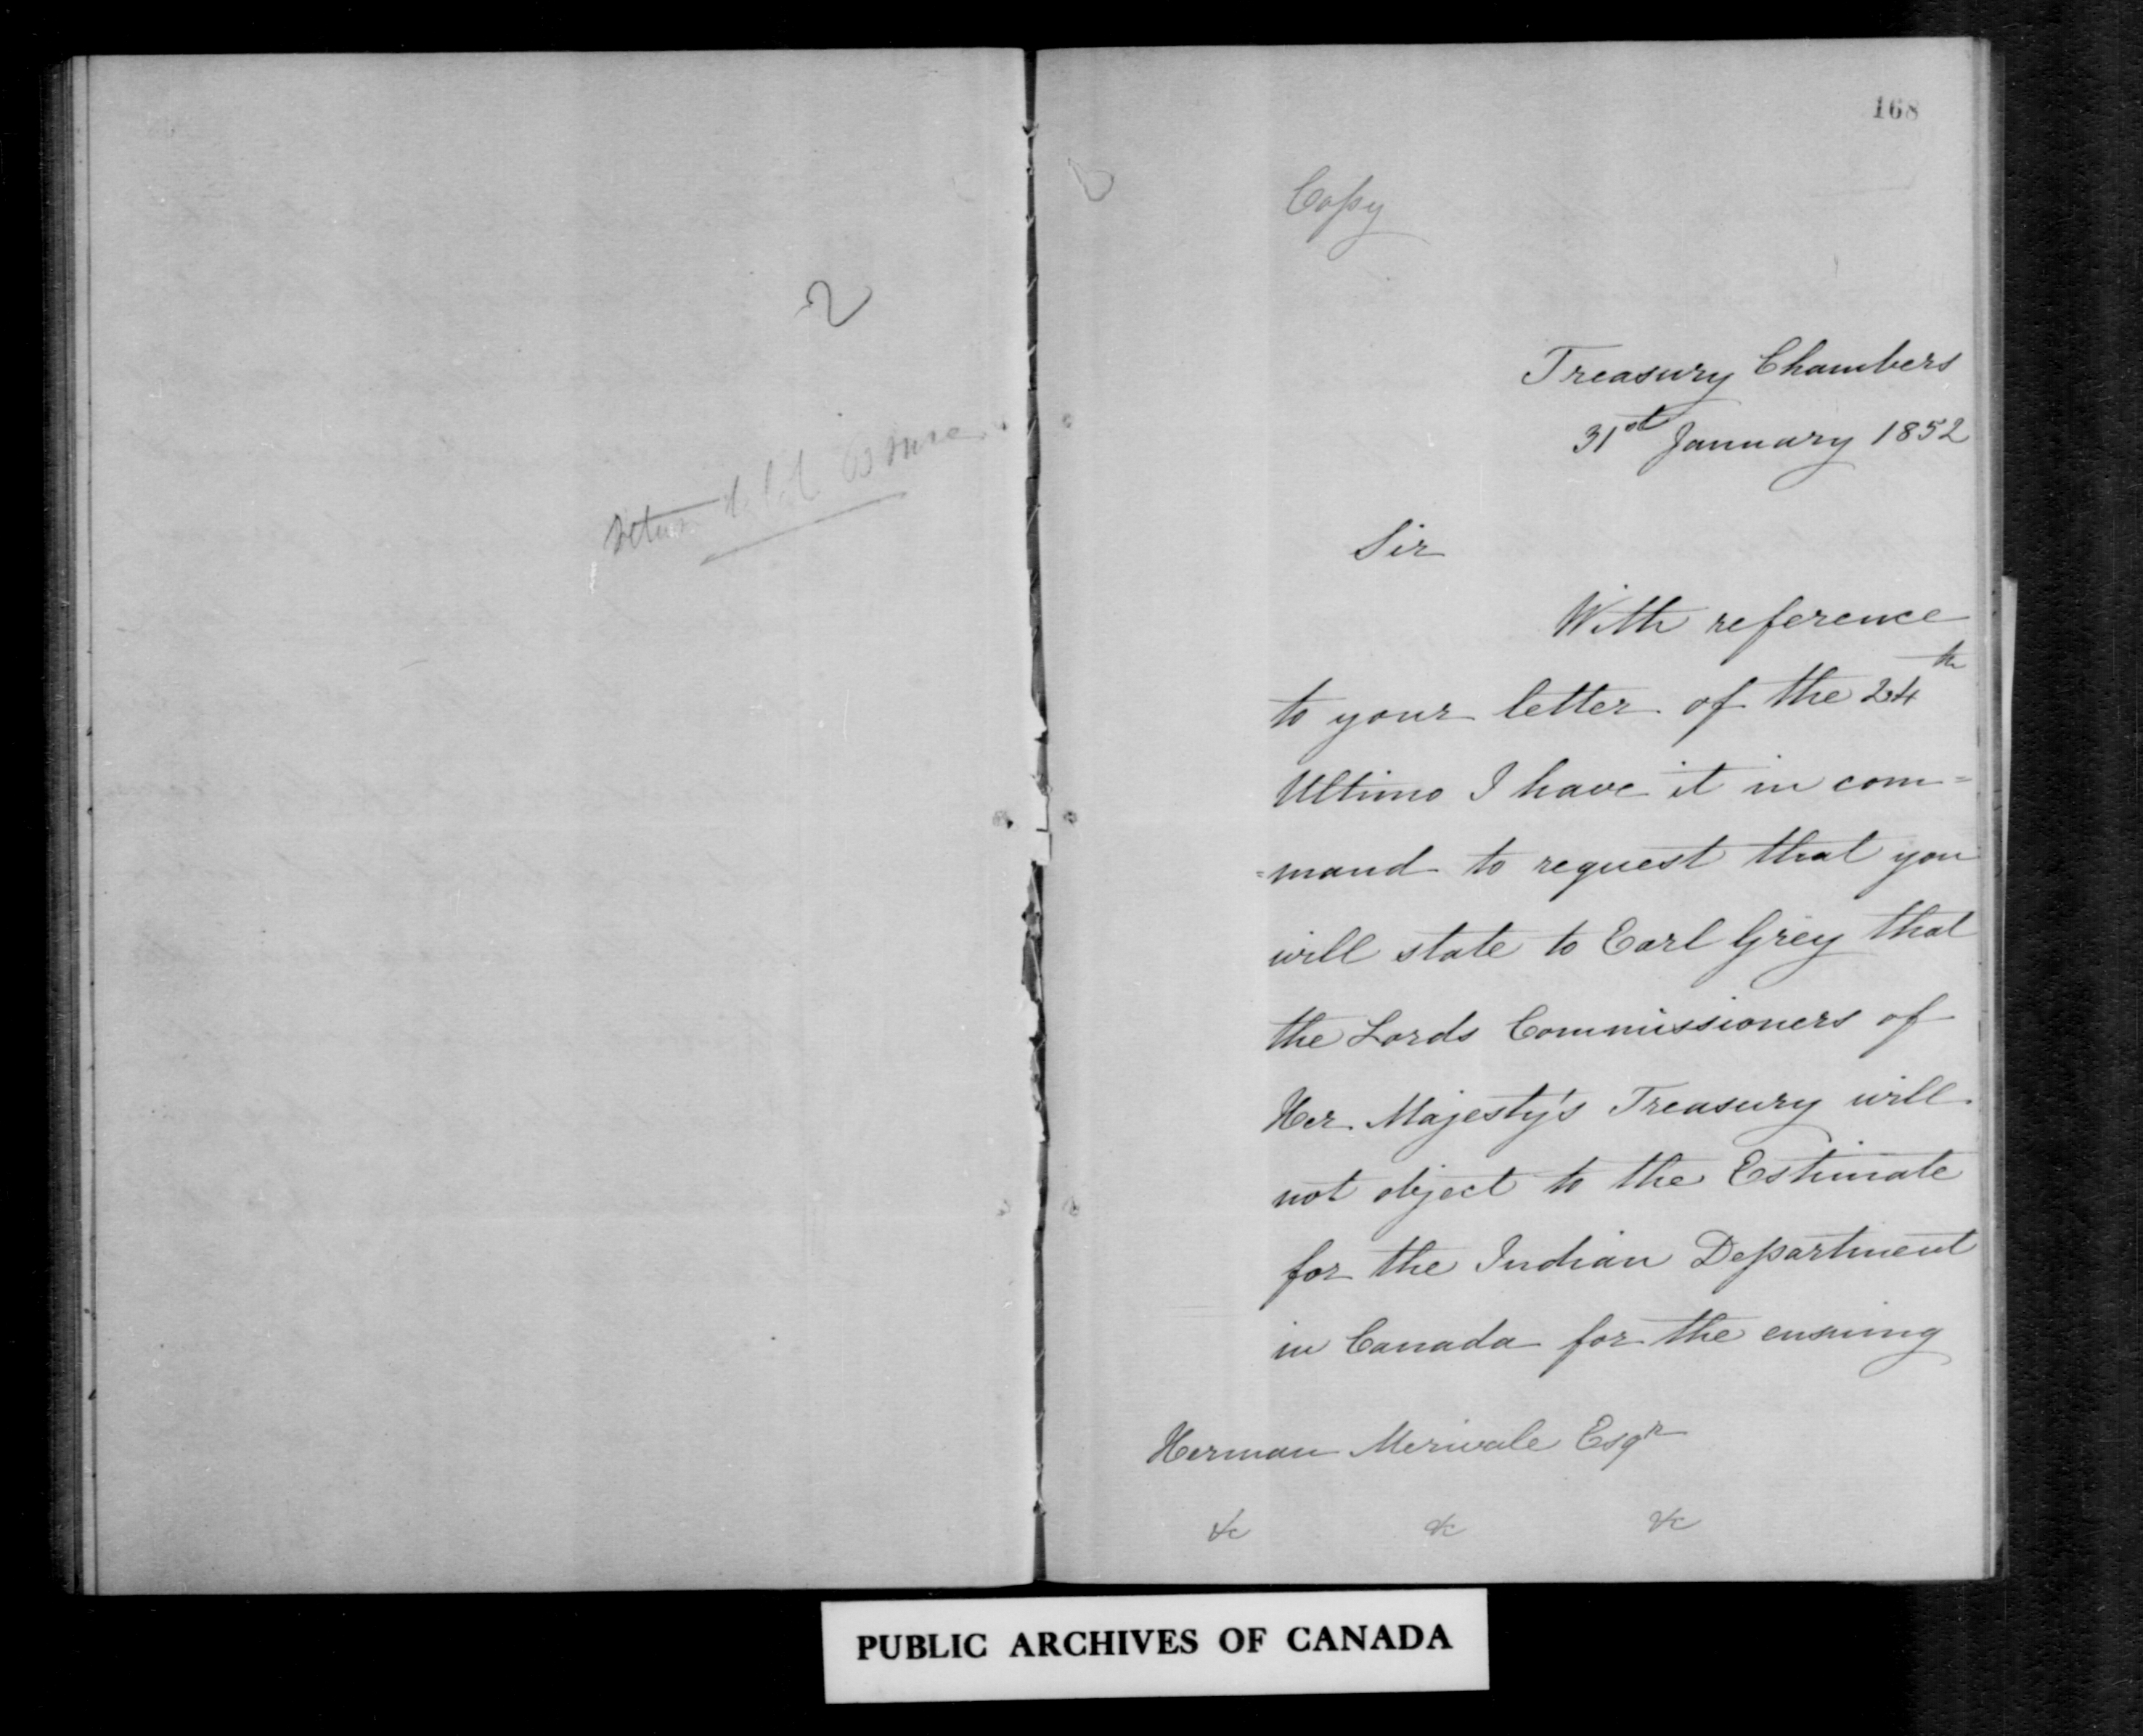 2
168
Copy
Treasury Chambers
31st January 1852
Sir
With reference
to your letter of the 24th
Ultimo I have it in com=
=mand to request that you
will state to Earl Grey that
the Lords Commissioners of
Her Majesty's Treasury will
not object to the Estimate
for the Indian Department
in Canada for the ensuing
Herman Merivale Esqr
&c &c &c
PUBLIC ARCHIVES OF CANADA